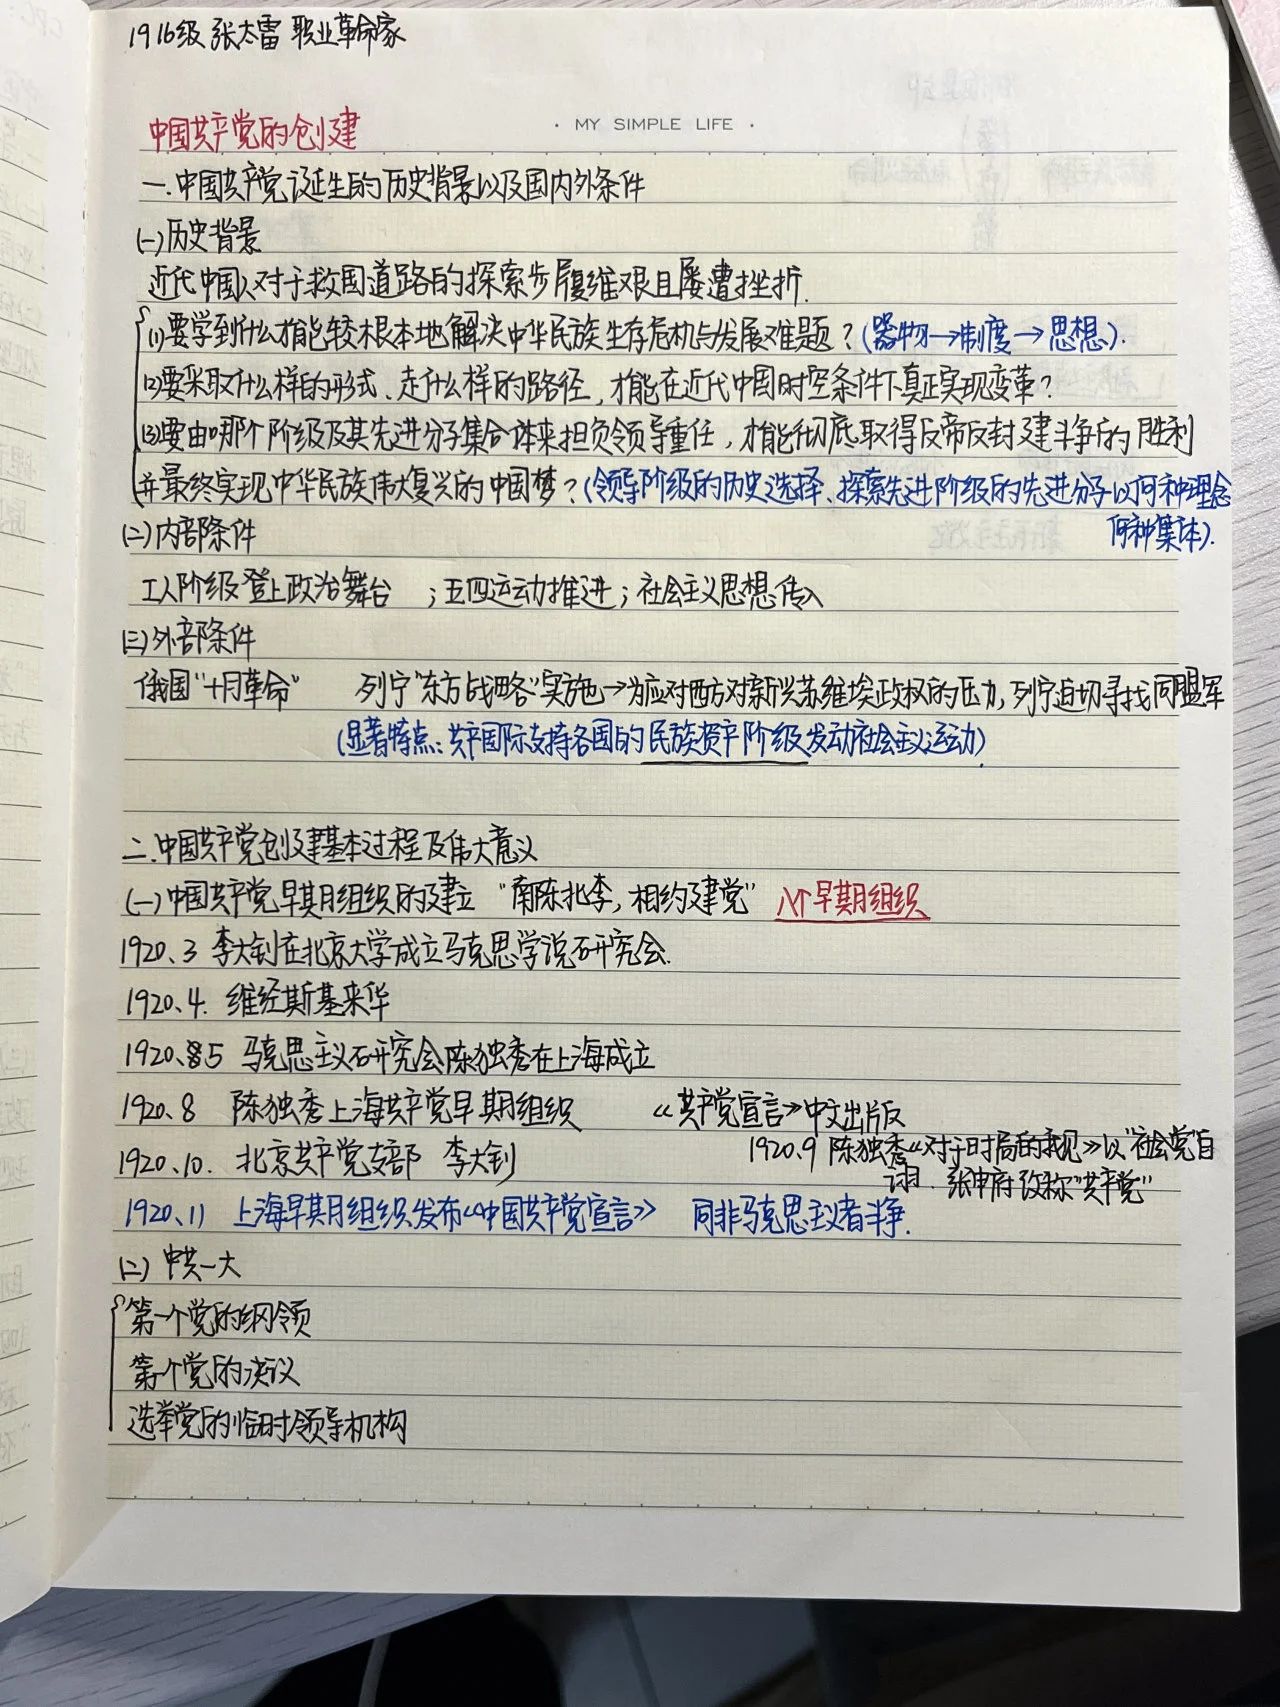 1916级 张太雷 职业革命家
· MY SIMPLE LIFE ·
中国共产党的创建
一.中国共产党诞生的历史背景以及国内外条件
(一)历史背景
近代中国人对于救国道路的探索步履维艰且屡遭挫折.
(1)要学到什么才能较根本地解决中华民族生存危机与发展难题？(器物→制度→思想).
(2)要采取什么样的形式、走什么样的路径，才能在近代中国时空条件下真正实现变革？
(3)要由哪个阶级及其先进分子集合体来担负领导重任，才能彻底取得反帝反封建斗争的胜利
并最终实现中华民族伟大复兴的中国梦？(领导阶级的历史选择、探索先进阶级的先进分子以何种理念
何种集体).
(二)内部条件
工人阶级登上政治舞台 ；五四运动推进；社会主义思想传入
(三)外部条件
俄国"十月革命" 列宁"东方战略"实施→为应对西方对新兴苏维埃政权的压力,列宁迫切寻找同盟军
(显著特点：共产国际支持各国的民族资产阶级发动社会主义运动)
二.中国共产党创建基本过程及伟大意义
(一)中国共产党早期组织的建立 "南陈北李，相约建党" 八个早期组织
1920、3 李大钊在北京大学成立马克思学说研究会.
1920、4. 维经斯基来华
1920、5 马克思主义研究会陈独秀在上海成立
1920、8 陈独秀上海共产党早期组织 《共产党宣言》中文出版
1920.9 陈独秀《对于时局的我见》以"社会党"自
诩. 张申府改称"共产党"
1920、10. 北京共产党支部 李大钊
1920、11 上海早期组织发布《中国共产党宣言》 同非马克思主义者斗争.
(二) 中共一大
第一个党的纲领
第一个党的决议
选举党的临时领导机构